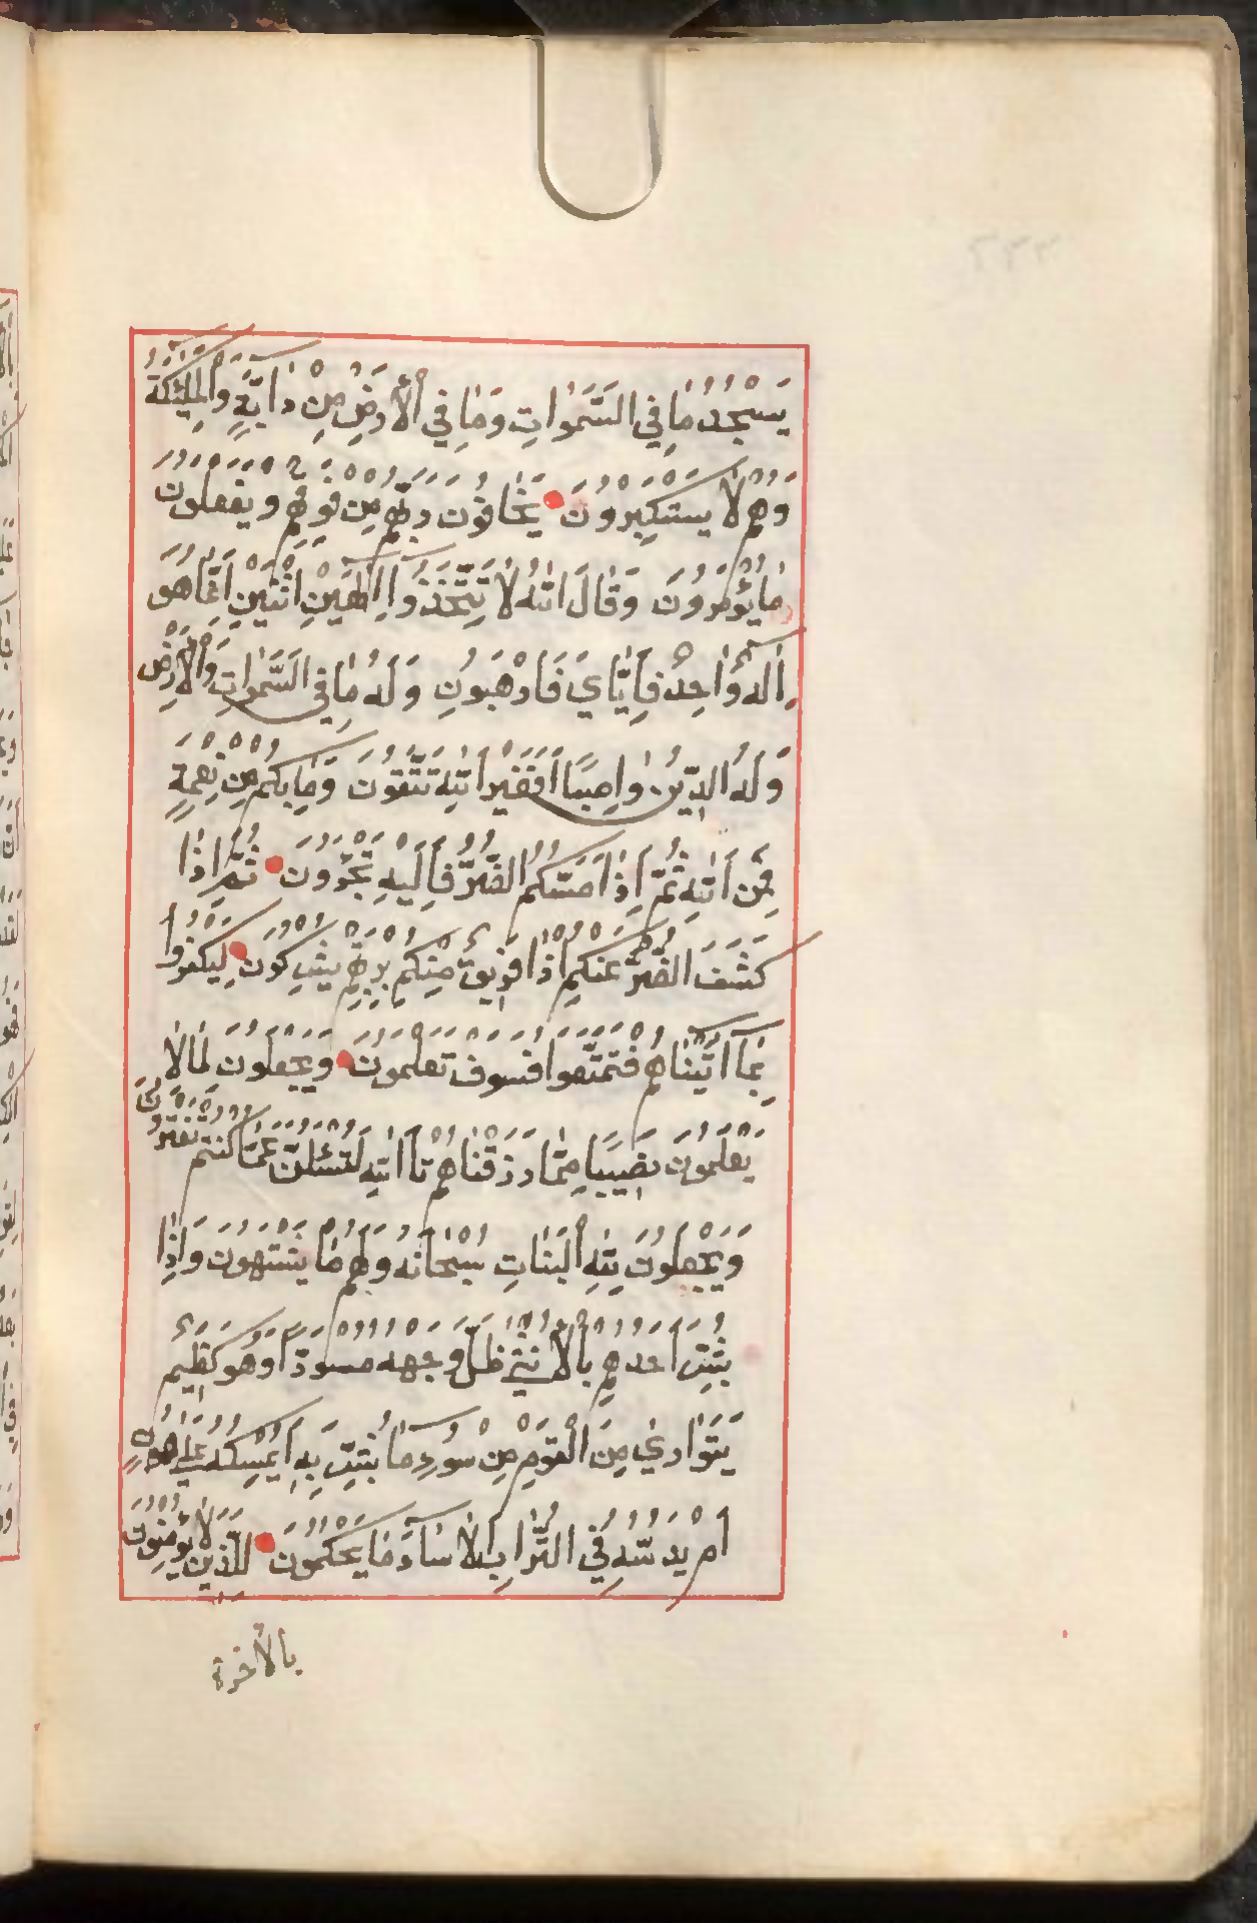 يَسْجُدُ مَا فِي السَّمَوَاتِ وَمَا فِي الْأَرْضِ مِنْ دَابَّةٍ وَالْمَلَئِكَةُ
وَهُمْ لَا يَسْتَكْبِرُونَ يَخَافُونَ رَبَّهُمْ مِنْ فَوْقِهِمْ وَيَفْعَلُونَ
مَا يُؤْمَرُونَ وَقَالَ اللهُ لَا تَتَّخِذُوا إِلَهَيْنِ اثْنَيْنِ إِنَّمَا هُوَ
إِلَهٌ وَاحِدٌ فَإِيَّايَ فَارْهَبُونِ وَلَهُ مَا فِي السَّمَوَاتِ وَالْأَرْضِ
وَلَهُ الدِّينُ وَاصِبًا أَفَغَيْرَ اللهِ تَتَّقُونَ وَمَا بِكُمْ مِنْ نِعْمَةٍ
فَمِنَ اللهِ ثُمَّ إِذَا مَسَّكُمُ الضُّرُّ فَإِلَيْهِ تَجْرَوُنَ ثُمَّ إِذَا
كَشَفَ الضُّرَّ عَنْكُمْ إِذَا فَرِيقٌ مِنْكُمْ بِرَبِّهِمْ يُشْرِكُونَ لِيَكْفُرُوا
بِمَا آتَيْنَاهُمْ فَتَمَتَّعُوا فَسَوْفَ تَعْلَمُونَ وَيَجْعَلُونَ لِمَا لَا
يَعْلَمُونَ نَصِيبًا مِمَّا رَزَقْنَاهُمْ تَاللهِ لَتُسْئَلُنَّ عَمَّا كُنْتُمْ تَفْتَرُونَ
وَيَجْعَلُونَ لِلهِ الْبَنَاتِ سُبْحَانَهُ وَلَهُمْ مَا يَشْتَهُونَ وَإِذَا
بُشِّرَ أَحَدُهُمْ بِالْأُنْثَى ظَلَّ وَجْهُهُ مُسْوَدًّا وَهُوَ كَظِيمٌ
يَتَوَارَى مِنَ الْقَوْمِ مِنْ سُوءِ مَا بُشِّرَ بِهِ أَيُمْسِكُهُ عَلَى هُونٍ
أَمْ يَدُسُّهُ فِي التُّرَابِ أَلَا سَاءَ مَا يَحْكُمُونَ لِلَّذِينَ لَا يُؤْمِنُونَ
بالأخرة